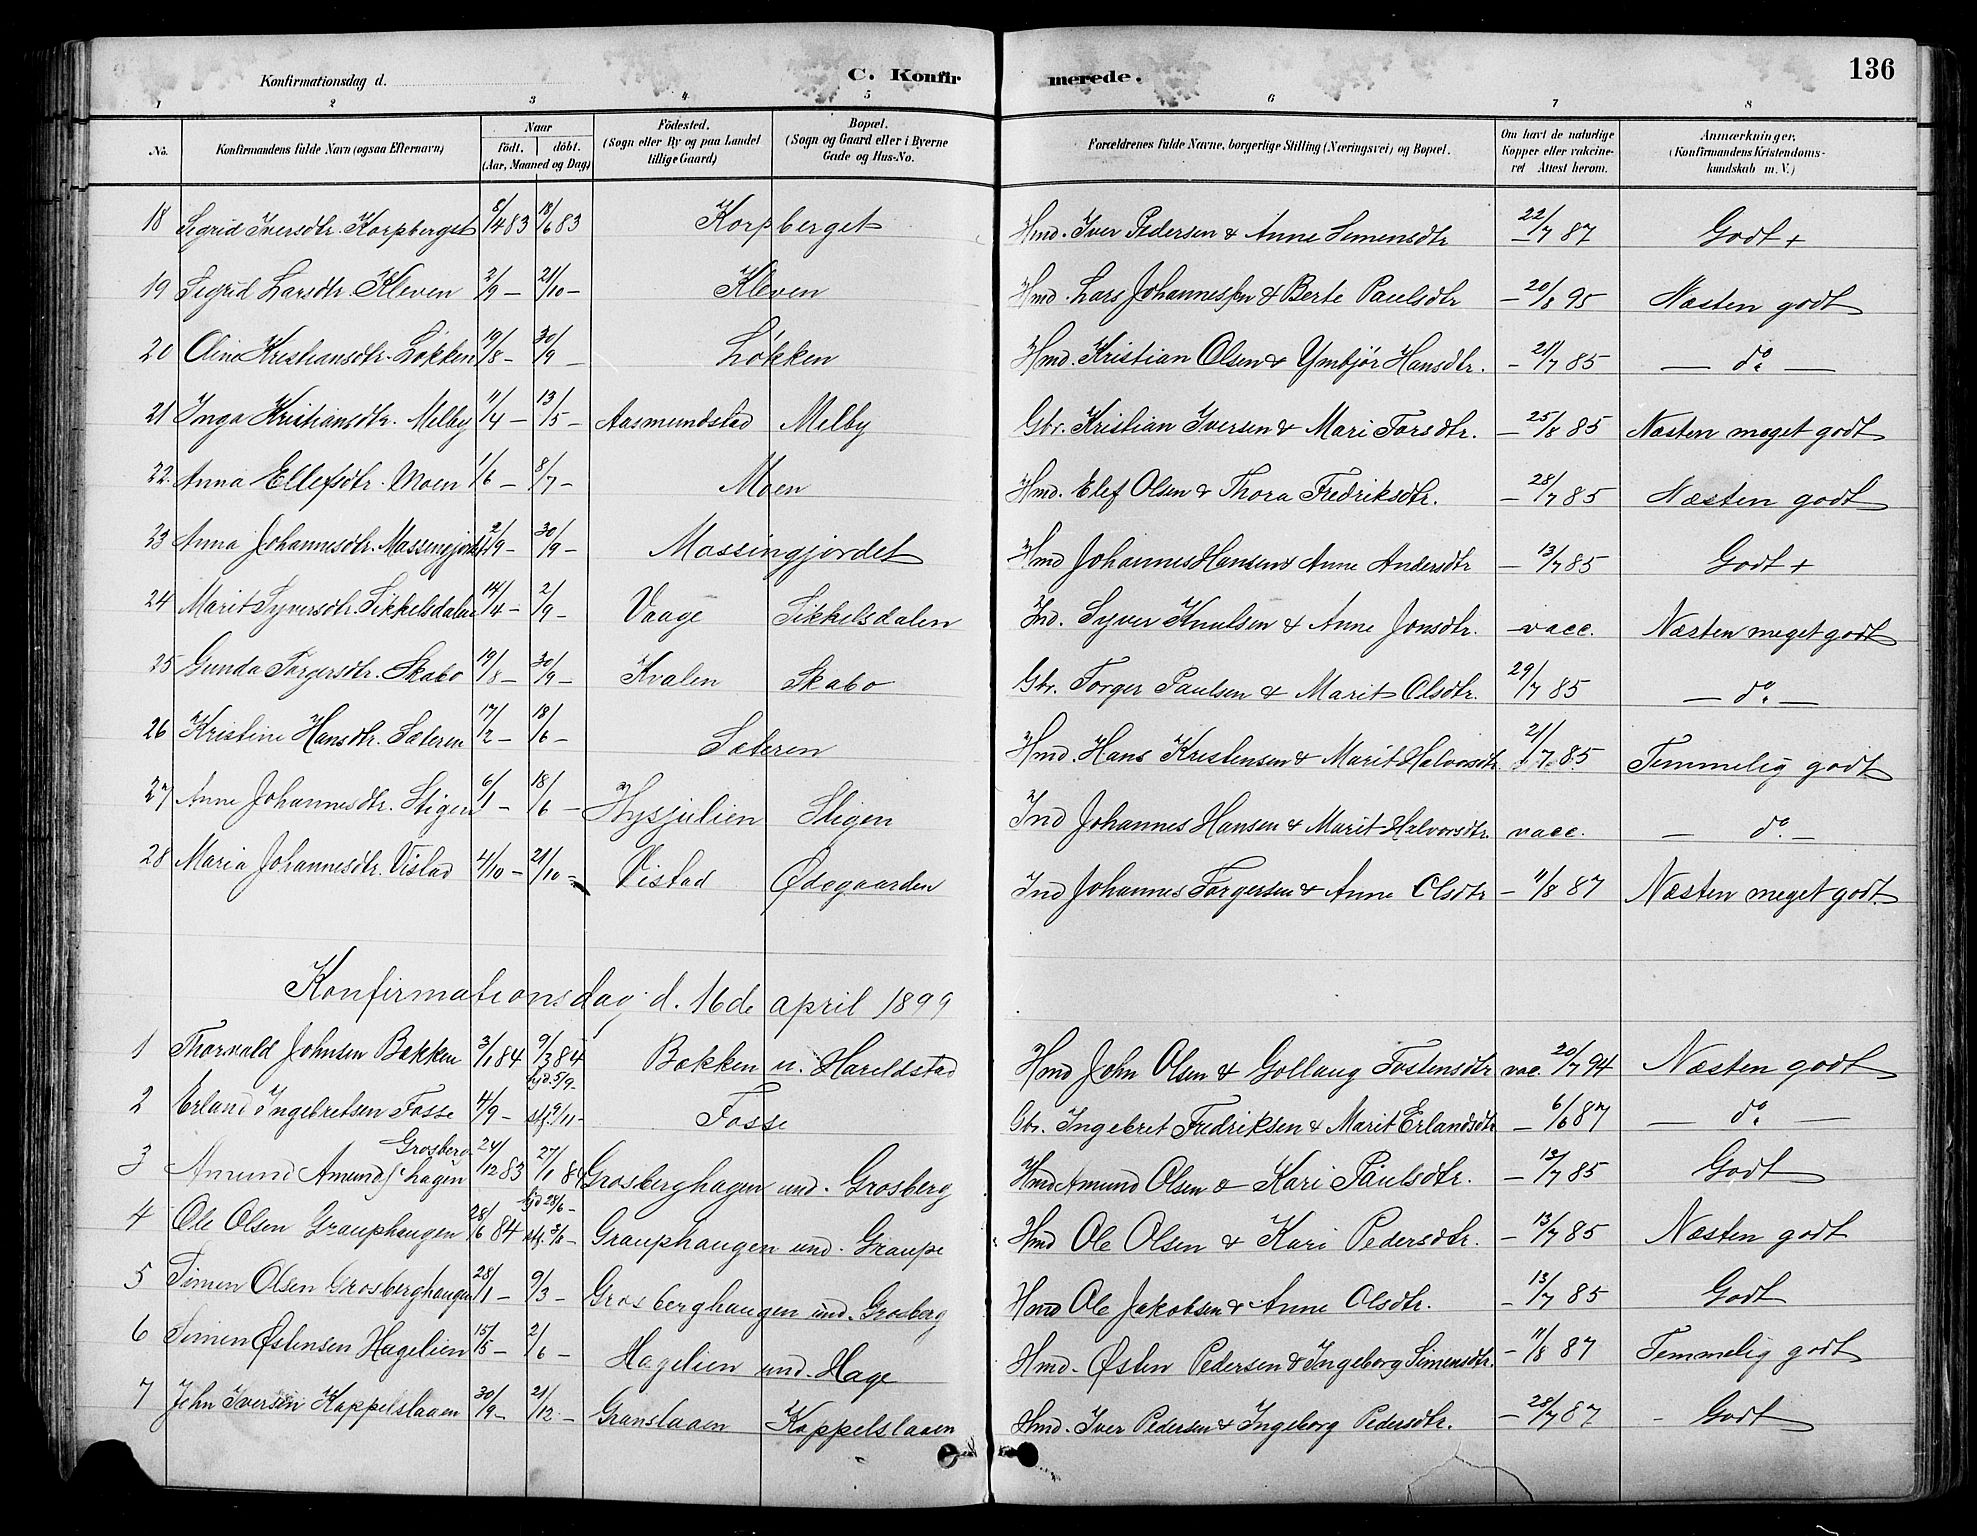 Konfirmationsdag d. C. Konfir merede. 136
1 2 3 4 5 6 7 8
No. Konfirmandens fulde Navn (ogsaa Efternavn) Naar født. døbt. (Aar, Maaned og Dag) Fødested. (Sogn eller By og paa Landet tillige Gaard) Bopæl. (Sogn og Gaard eller i Byerne Gade og Hus-No. Forældrenes fulde Navne, borgerlige Stilling (Næringsvei) og Bopæl. Om havt de naturlige Kopper eller vakcineret Attest herom. Anmærkninger, (Konfirmandens Kristendomskundskab m. V.)
18 Sigrid Iversdtr. Korpberget 8/4 83 18/6 83 Korpberget Hmd. Iver Pedersen & Anne Simensdtr – 22/7 87 Godt +
19 Sigrid Larsdtr. Kleven 2/9 – 21/10 – Kleven Hmd. Lars Johannessen & Berte Paulsdtr – 20/8 95 Næsten godt
20 Oline Kristiansdtr. Løkken 19/8 – 30/9 – Løkken Hmd. Kristian Olsen & Ymbjør Hansdtr. – 21/7 85 – do –
21 Inga Kristiansdtr. Melby 11/4 – 13/5 – Aasmundstad Melby Gbr. Kristian Iversen & Mari Torsdtr. – 25/8 85 Næsten meget godt
22. Anna Ellefsdtr. Moen 1/6 – 8/7 – Moen Hmd. Elef Olsen & Thora Fredriksdtr. – 28/7 85 Næsten godt
23 Anna Johannesdtr. Massingjordet 2/9 – 30/9 – Massingjordet Hmd Johannes Hansen & Anne Andersdtr – 13/7 85 Godt +
24 Marit Syversdtr. Sikkelsdalen 14/4 – 2/9 – Vaage Sikkelsdalen Ind. Syver Knutsen & Anne Jonsdtr. – vacc. Næsten meget godt
25 Gunda Torgersdtr. Skabo 19/8 – 30/9 – Kvalen Skabo Gbr. Torger Paulsen & Marit Olsdtr. 29/7 85 – do –
26 Kristine Hansdtr. Sæteren 17/2 – 18/6 – Sæteren Hmd. Hans Kristensen & Marit Halvorsdtr. 21/7 85. Temmelig godt
27 Anne Johannesdtr. Stigen 6/1 – 18/6 – Hysjulien Stigen Ind Johannes Hansen & Marit Halvorsdtr. vacc. – do –
28 Maria Johannesdtr. Vistad 4/10 – 21/10 – Vistad Ødegaarden Ind Johannes Torgersen & Anne Olsdtr – 11/8 87 Næsten meget godt.
Konfirmationsdag d. 16de april 1899
1 Thorvald Johnsen Bakken 3/1 84 9/3 84 Bakken u. Harildstad Hmd John Olsen & Gollaug Tostensdtr vac. 20/7 94 Næsten godt
2 Erland Ingebretsen Fosse 4/9 – hjd. 5/9 – stf. 9/11 – Fosse Gbr. Ingebret Fredriksen & Marit Erlandsdtr – 6/6 87 – do –
3 Amund Amunds. Grosberghagen 24/12 83 27/1 84 Grosberghagen und. Grosberg Hmd Amund Olsen & Kari Paulsdtr. – 13/7 85 Godt
4 Ole Olsen Grauphaugen 28/6 84 hjd 28/6 – stf. 3/8 – Grauphaugen und. Graupe Hmd Ole Olsen & Kari Pedersdtr. – 13/7 85 Næsten godt
5 Simen Olsen Grosberghaugen 28/1 – 9/3 – Grosberghaugen und. Grosberg Hmd Ole Jakobsen & Anne Olsdtr. – 13/7 85 Godt
6 Simen Østensen Hagelien 15/5 – 2/6 – Hagelien und. Hage Hmd. Østen Pedersen & Ingeborg Simensdtr. – 11/8 87 Temmelig godt
7 John Iversen Kappelslaaen 30/9 – 21/12 – Granslaaen Kappelslaaen Hmd. Iver Pedersen & Ingeborg Pedersdtr. – 28/7 87 – Godt